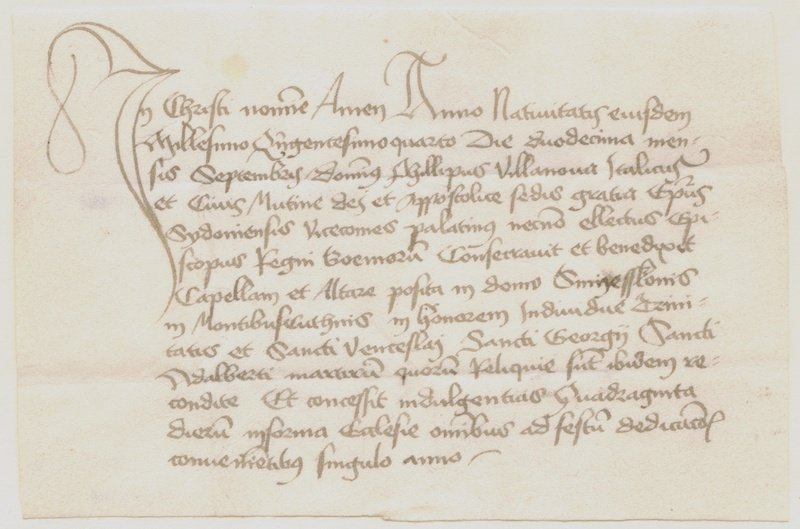 In Christi nomine Amen Anno Nativitatis eiusdem
Millesimo Qingentesimo quarto Die duodecima men-
sis Septembris dominus Phillipus Villanova Italicus
et Civis Mutine dei et Appostolice sedis gratia Epus
Sydoniensis Vicecomes palatinus necno ellectus Epi-
scopus Regni boemoru Consecravit et benedixit
Capellam et Altare posita in domo Smisskonis
in Montibuschuthnis in honorem Individue Trini-
tatis et Sancti Venceslaj Sancti Georgij Sancti
Adalberti martiru quoru Reliquie sut ibidem re-
condite Et concessit indulgentias Quadraginta
dieru in forma Ecclesie omibus ad festu dedicacois
convenietibus singulo anno